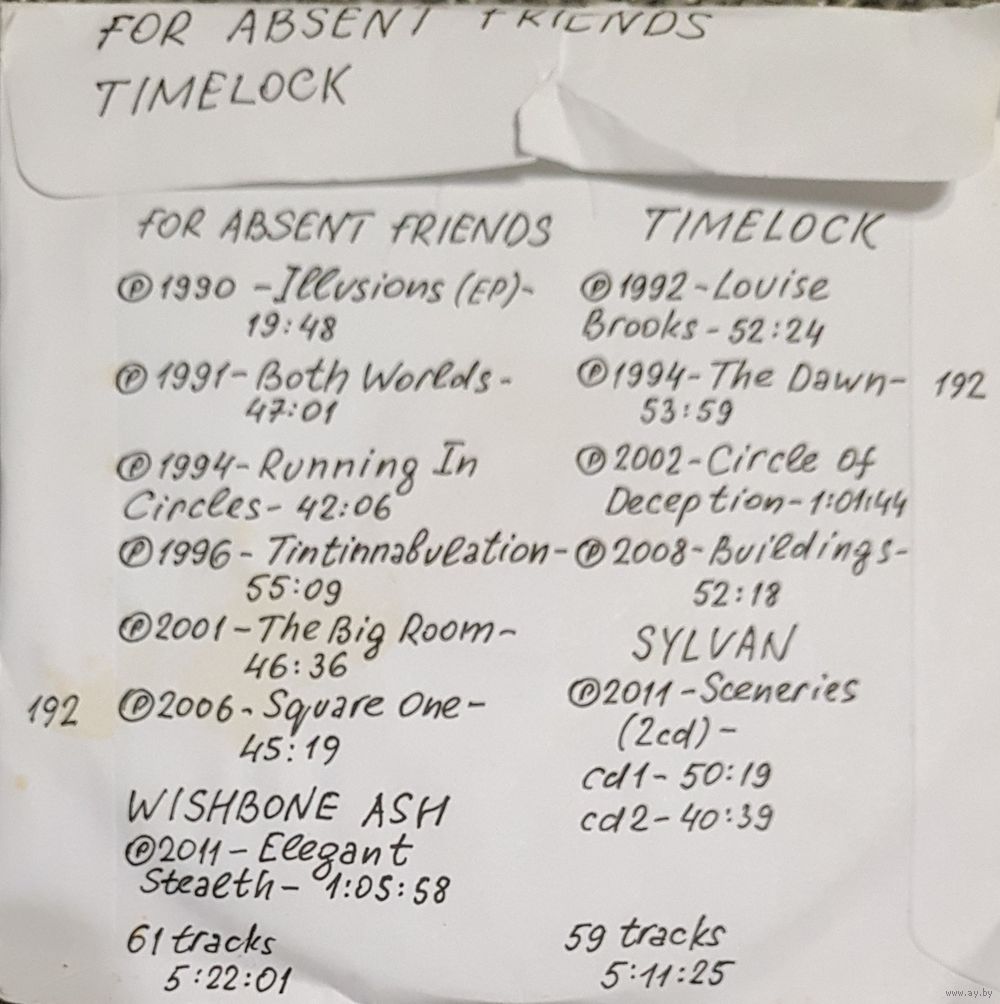 FOR ABSENT FRIENDS
TIMELOCK
FOR ABSENT FRIENDS
Ⓟ1990 - Illusions (EP)-
19:48
Ⓟ1991 - Both Worlds -
47:01
Ⓟ1994 - Running In
Circles - 42:06
Ⓟ1996 - Tintinnabulation -
55:09
Ⓟ2001 - The Big Room -
46:36
192 Ⓟ2006 - Square One -
45:19
WISHBONE ASH
Ⓟ2011 - Elegant
Stealth - 1:05:58
61 tracks
5:22:01
TIMELOCK
Ⓟ1992 - Louise
Brooks - 52:24
Ⓟ1994 - The Dawn - 192
53:59
Ⓟ2002 - Circle Of
Deception - 1:01:44
Ⓟ2008 - Buildings -
52:18
SYLVAN
Ⓟ2011 - Sceneries
(2cd) -
cd1 - 50:19
cd2 - 40:39
59 tracks
5:11:25
www.ay.by